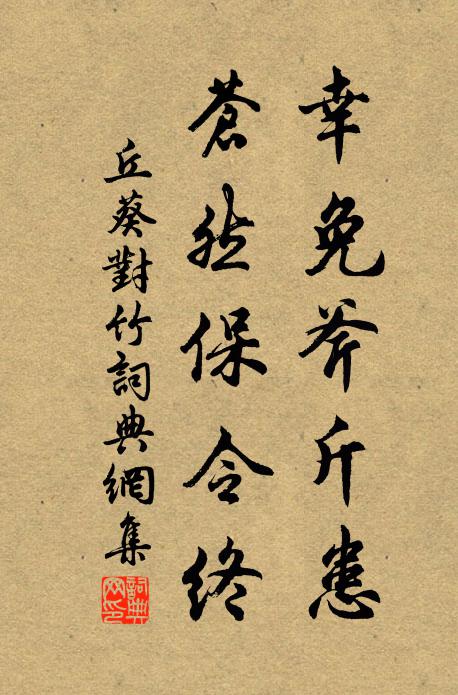 幸免斧斤患
蒼然保令終
丘葵對竹詞典網集
詞典網印